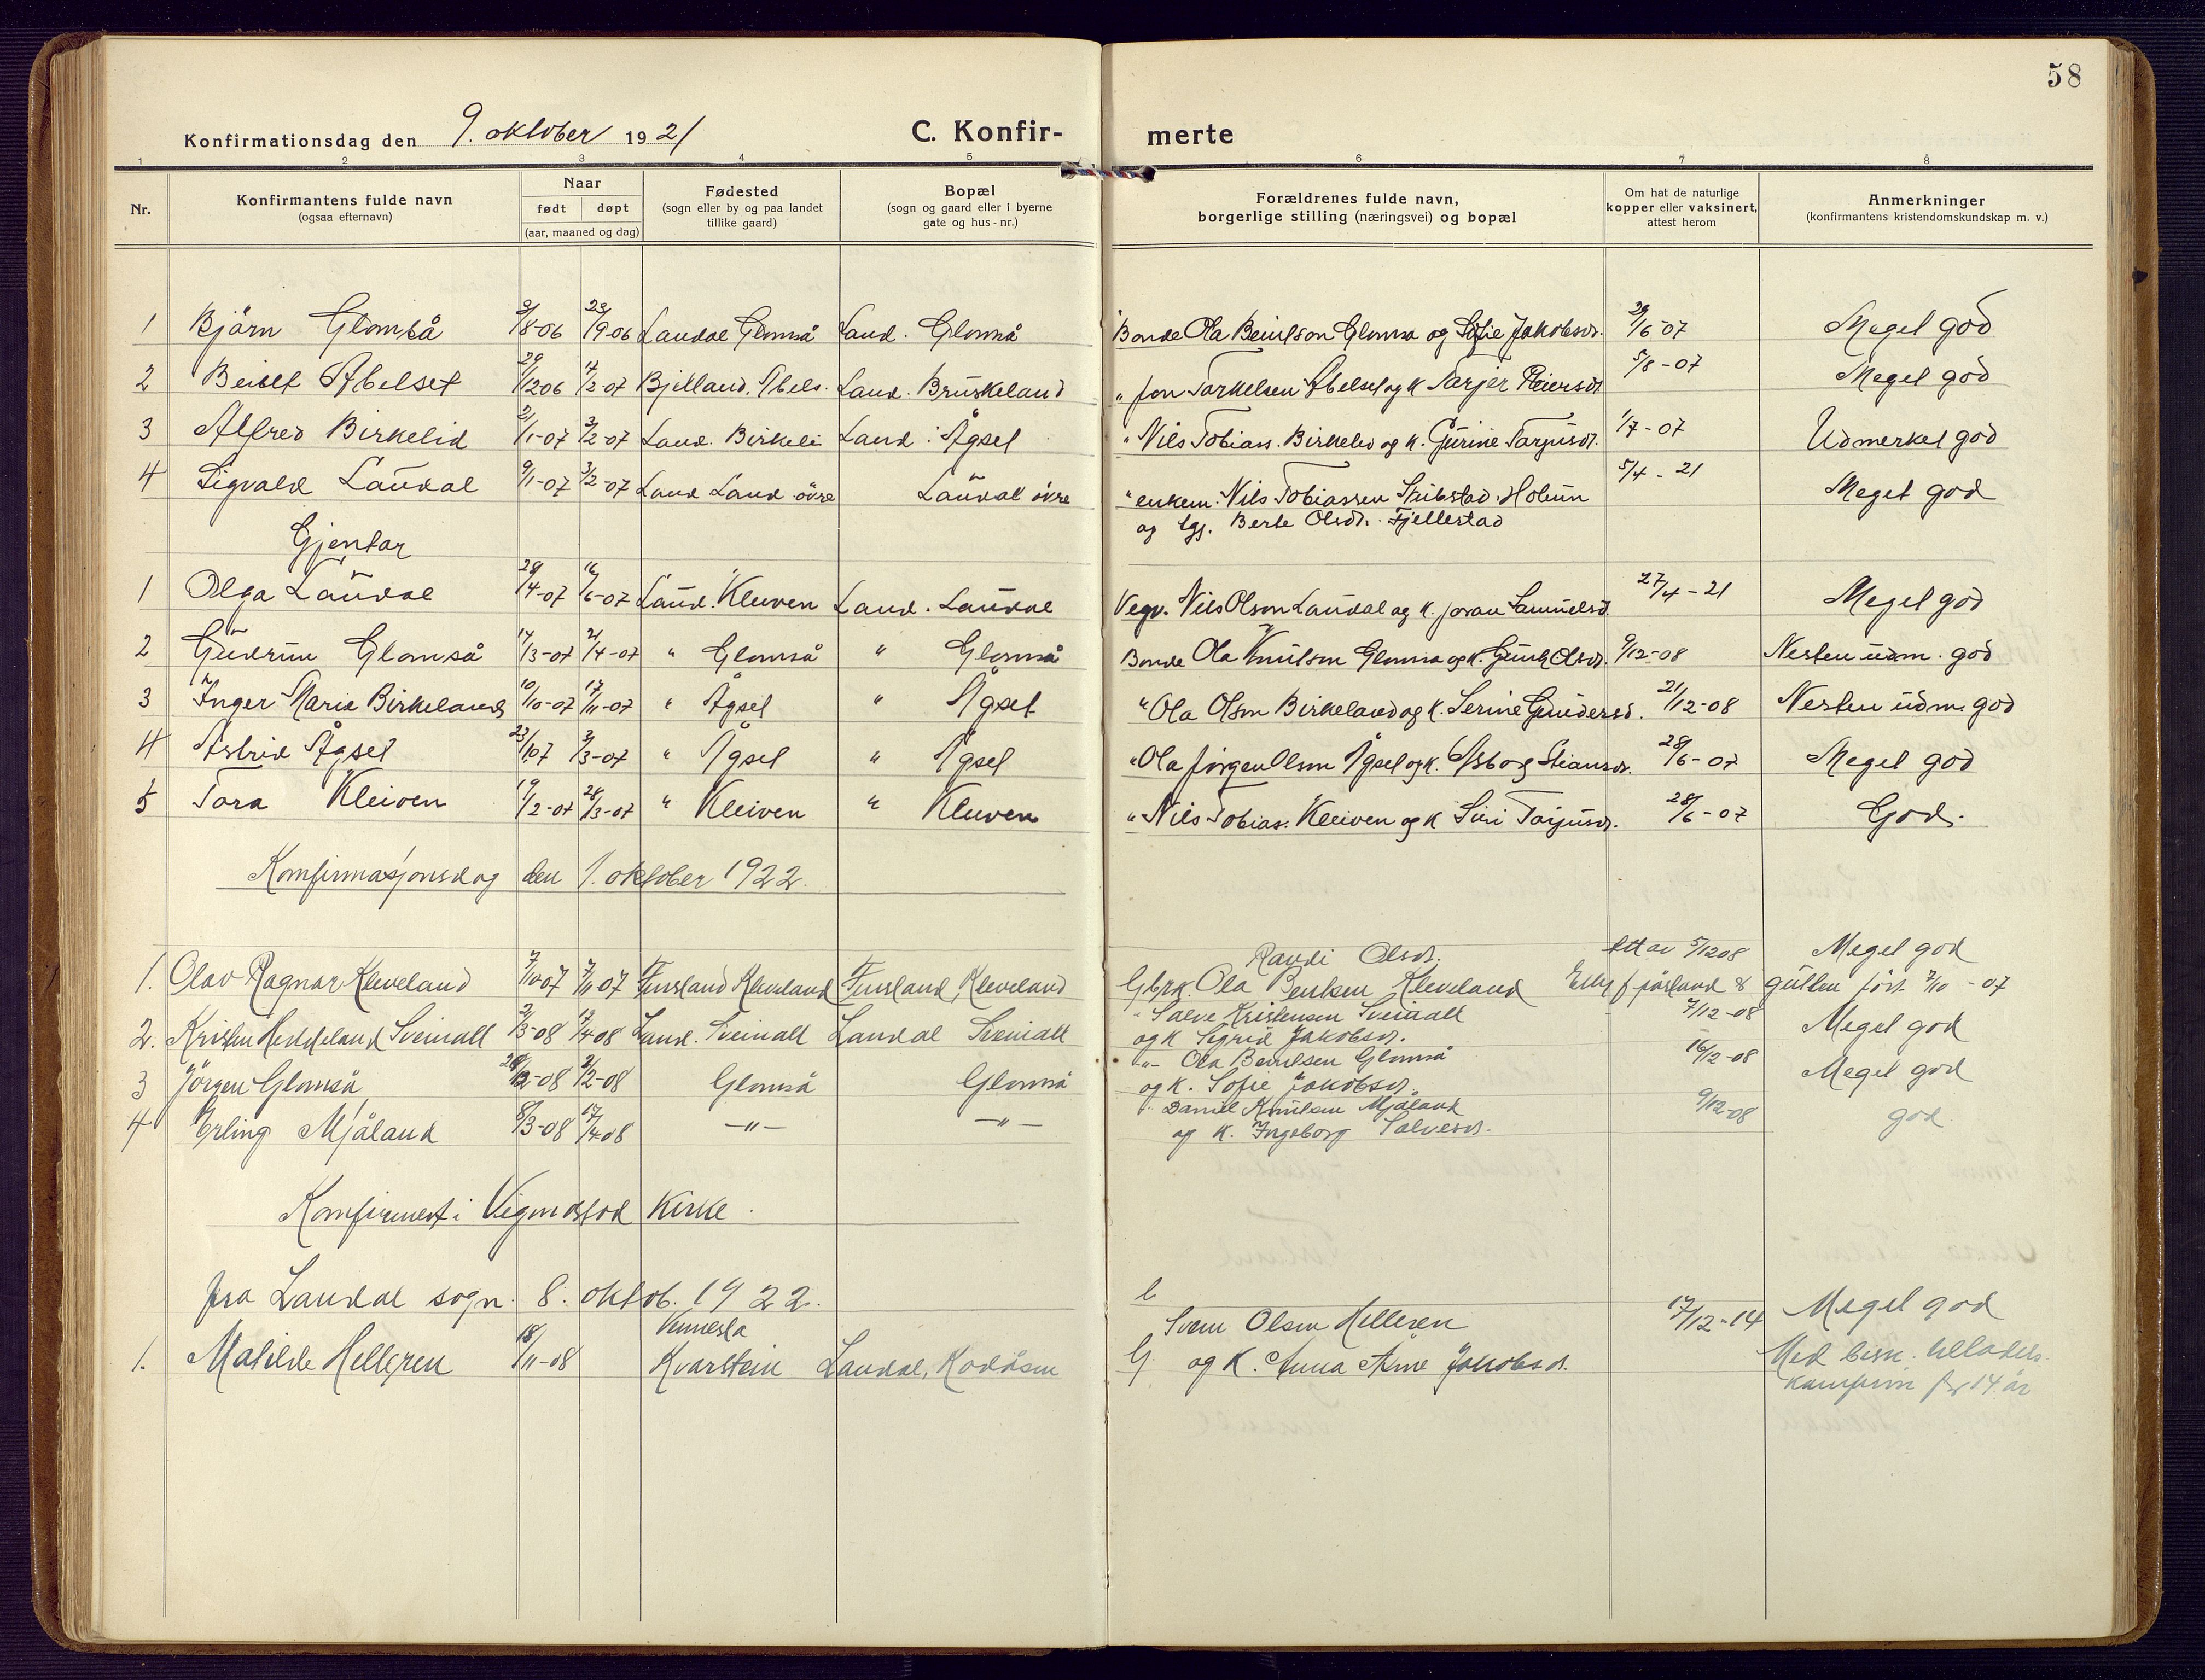 58
Konfirmationsdag den 9. oktober 1921
C. Konfir-merte
1 2 3 4 5 6 7 8
Nr.
Konfirmantens fulde navn
(ogsaa efternavn)
Naar
født døpt
(aar, maaned og dag)
Fødested
(sogn eller by og paa landet
tillike gaard)
Bopæl
(sogn og gaard eller i byerne
gate og hus-nr.)
Forældrenes fulde navn,
borgerlige stilling (næringsvei) og bopæl
Om hat de naturlige
kopper eller vaksinert,
attest herom
Anmerkninger
(konfirmantens kristendomskundskap m. v.)
1 Björn Glomså 3/8-06 23/9-06 Laudal Glomså Laud. Glomså Bonde Ola Beintson Glomsa og Sofie Jakobsdr. 29/6-07 Meget god
2 Beint Abelset 29/12 06 17/2-07 Bjelland. Abels. Laud. Bruskeland " Jon Tarkelsen Abelset og k Tarjer Reiersdr. 5/8-07 Meget god
3 Alfred Birkelid 2/1-07 3/2-07 Laud. Birkeli Laud. Ågsel " Nils Tobiass. Birkelid og k. Gurine Tarjusdr. 1/7-07 Udmerket god
4 Sigvald Laudal 9/1-07 3/2-07 Laud Laud övre Laudal övre " enkem. Nils Tobiassen Stubstad, Holum 5/4-21 Meget god
og ugj. Berte Olsdr. Fjellestad
Gjentor
1 Olga Laudal 29/4-07 16/6-07 Laud. Kleiven Laud. Laudal Vegv. Nils Olson Laudal og k. Joran Samuelsd. 27/4-21 Meget god
2 Gudrun Glomså 17/3-07 21/4-07 " Glomså " Glomså Bonde Ola Knutson Glomsa og k. Gunh. Olsdr. 9/12-08 Nesten udm. god
3 Inger Marie Birkeland 10/10-07 17/11-07 " Ågsel " Ågsel " Ola Olson Birkeland og k. Serine Gundersd. 21/12-08 Nesten udm. god
4 Astrid Ågsel 23/1 07 3/3-07 " Ågsel " Ågsel " Ola Jörgen Olson Ågsel og k. Asborg Stiansdr. 28/6-07 Meget god
5 Tora Kleiven 19/2-07 28/3-07 " Kleiven " Kleiven " Nils Tobias. Kleiven og k Siri Tarjusdr. 28/6-07 God.
Konfirmasjonsdag den 1. oktober 1922.
Randi Olsdr. att av 5/12 08 Meget god
1. Olav Ragnar Kleveland 7/10 07 7/11 07 Finsland Kleveland Finsland, Kleveland Gbrk. Ola Bentsen Kleveland gutten föd. 7/10-07
2. Kristen Heddeland Sveinall 2/3-08 17/4-08 Laud. Sveinall Laudal Sveinall " Salve Kristensen Sveinall 7/12-08 Meget god
og k Sigrid Jakobsdr.
3 Jörgen Glomså 2/2-08 Glomså Glomså -"- Ola Beintsen Glomså 16/12-08 Meget god
og k. Sofie Jakobsdr.
4 Erling Mjåland 8/3-08 17/4-08 -"- -"- " Daniel Knutsen Mjåland 9/12-08 god
og k. Ingeborg Salvesdr.
Konfirmert i Vigmostad Kirke.
fra Laudal sogn. 8. oktob. 1922.
Vennesla
1. Matilde Helleren 18/11-08 Kvarstein Laudal, Kodåsen Sven Olsen Helleren 17/12-14 Meget god
G. og k. Anna Arne Jakobsdr. Med bisk. tillatels.
konfirm før 14 år